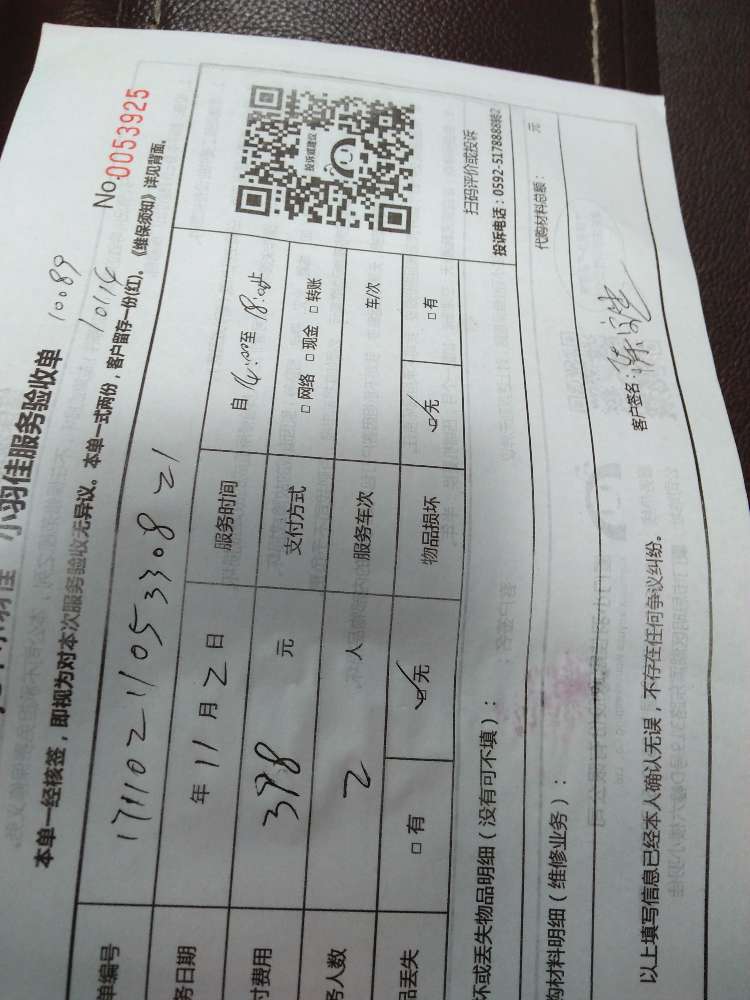 小羽佳服务验收单
10089
10116
No.0053925
本单一经核签，即视为对本次服务验收无异议。本单一式两份，客户留存一份(红)。《维保须知》详见背面。
单编号 17110211053330821
务日期 年 11 月 2 日 服务时间 自 14:00 至 18:00 止
付费用 398 元 支付方式 □ 网络 □ 现金 □ 转账
务人数 2 人 服务车次 车/次
品丢失 □ 有 ☑ 无 物品损坏 ☑ 无 □ 有
投诉或建议
扫码评价或投诉
投诉电话：0592-5178888转82
坏或丢失物品明细（没有可不填）：
购材料明细（维修业务）：
代购材料总额： 元
以上填写信息已经本人确认无误，不存在任何争议纠纷。
客户签名：